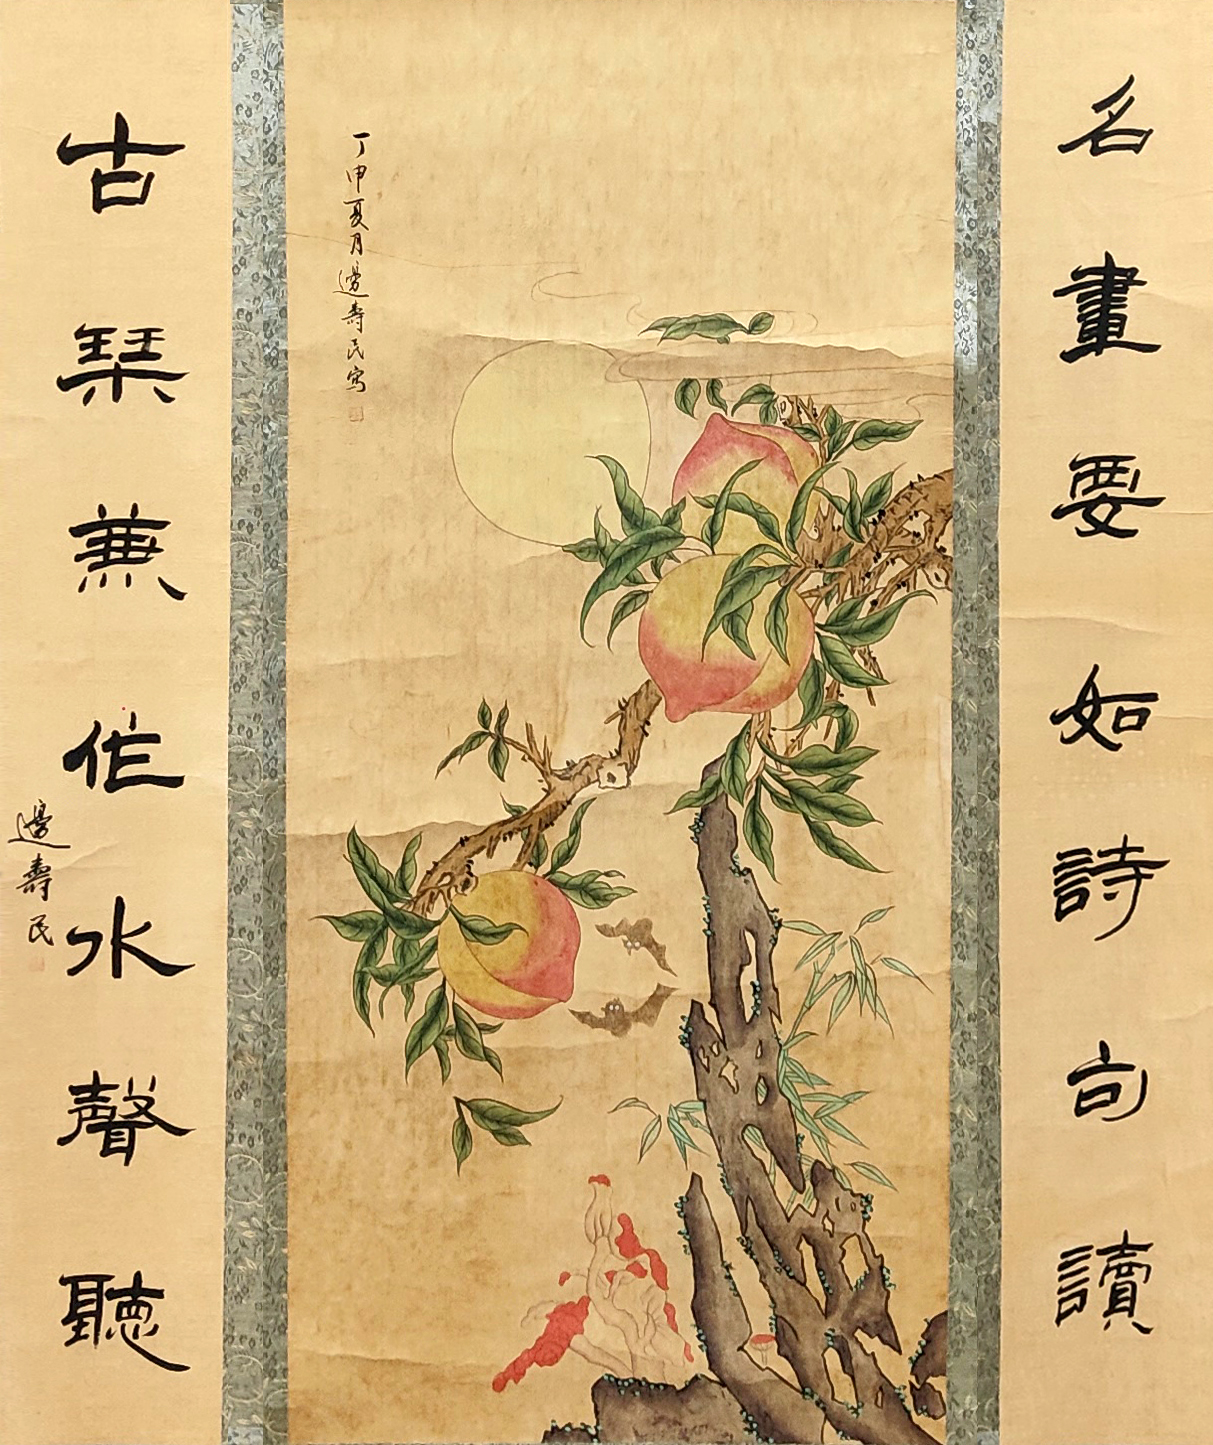 名畫要如詩句讀
古琹兼作水聲聽
邊壽民
丁申夏月邊壽民寫